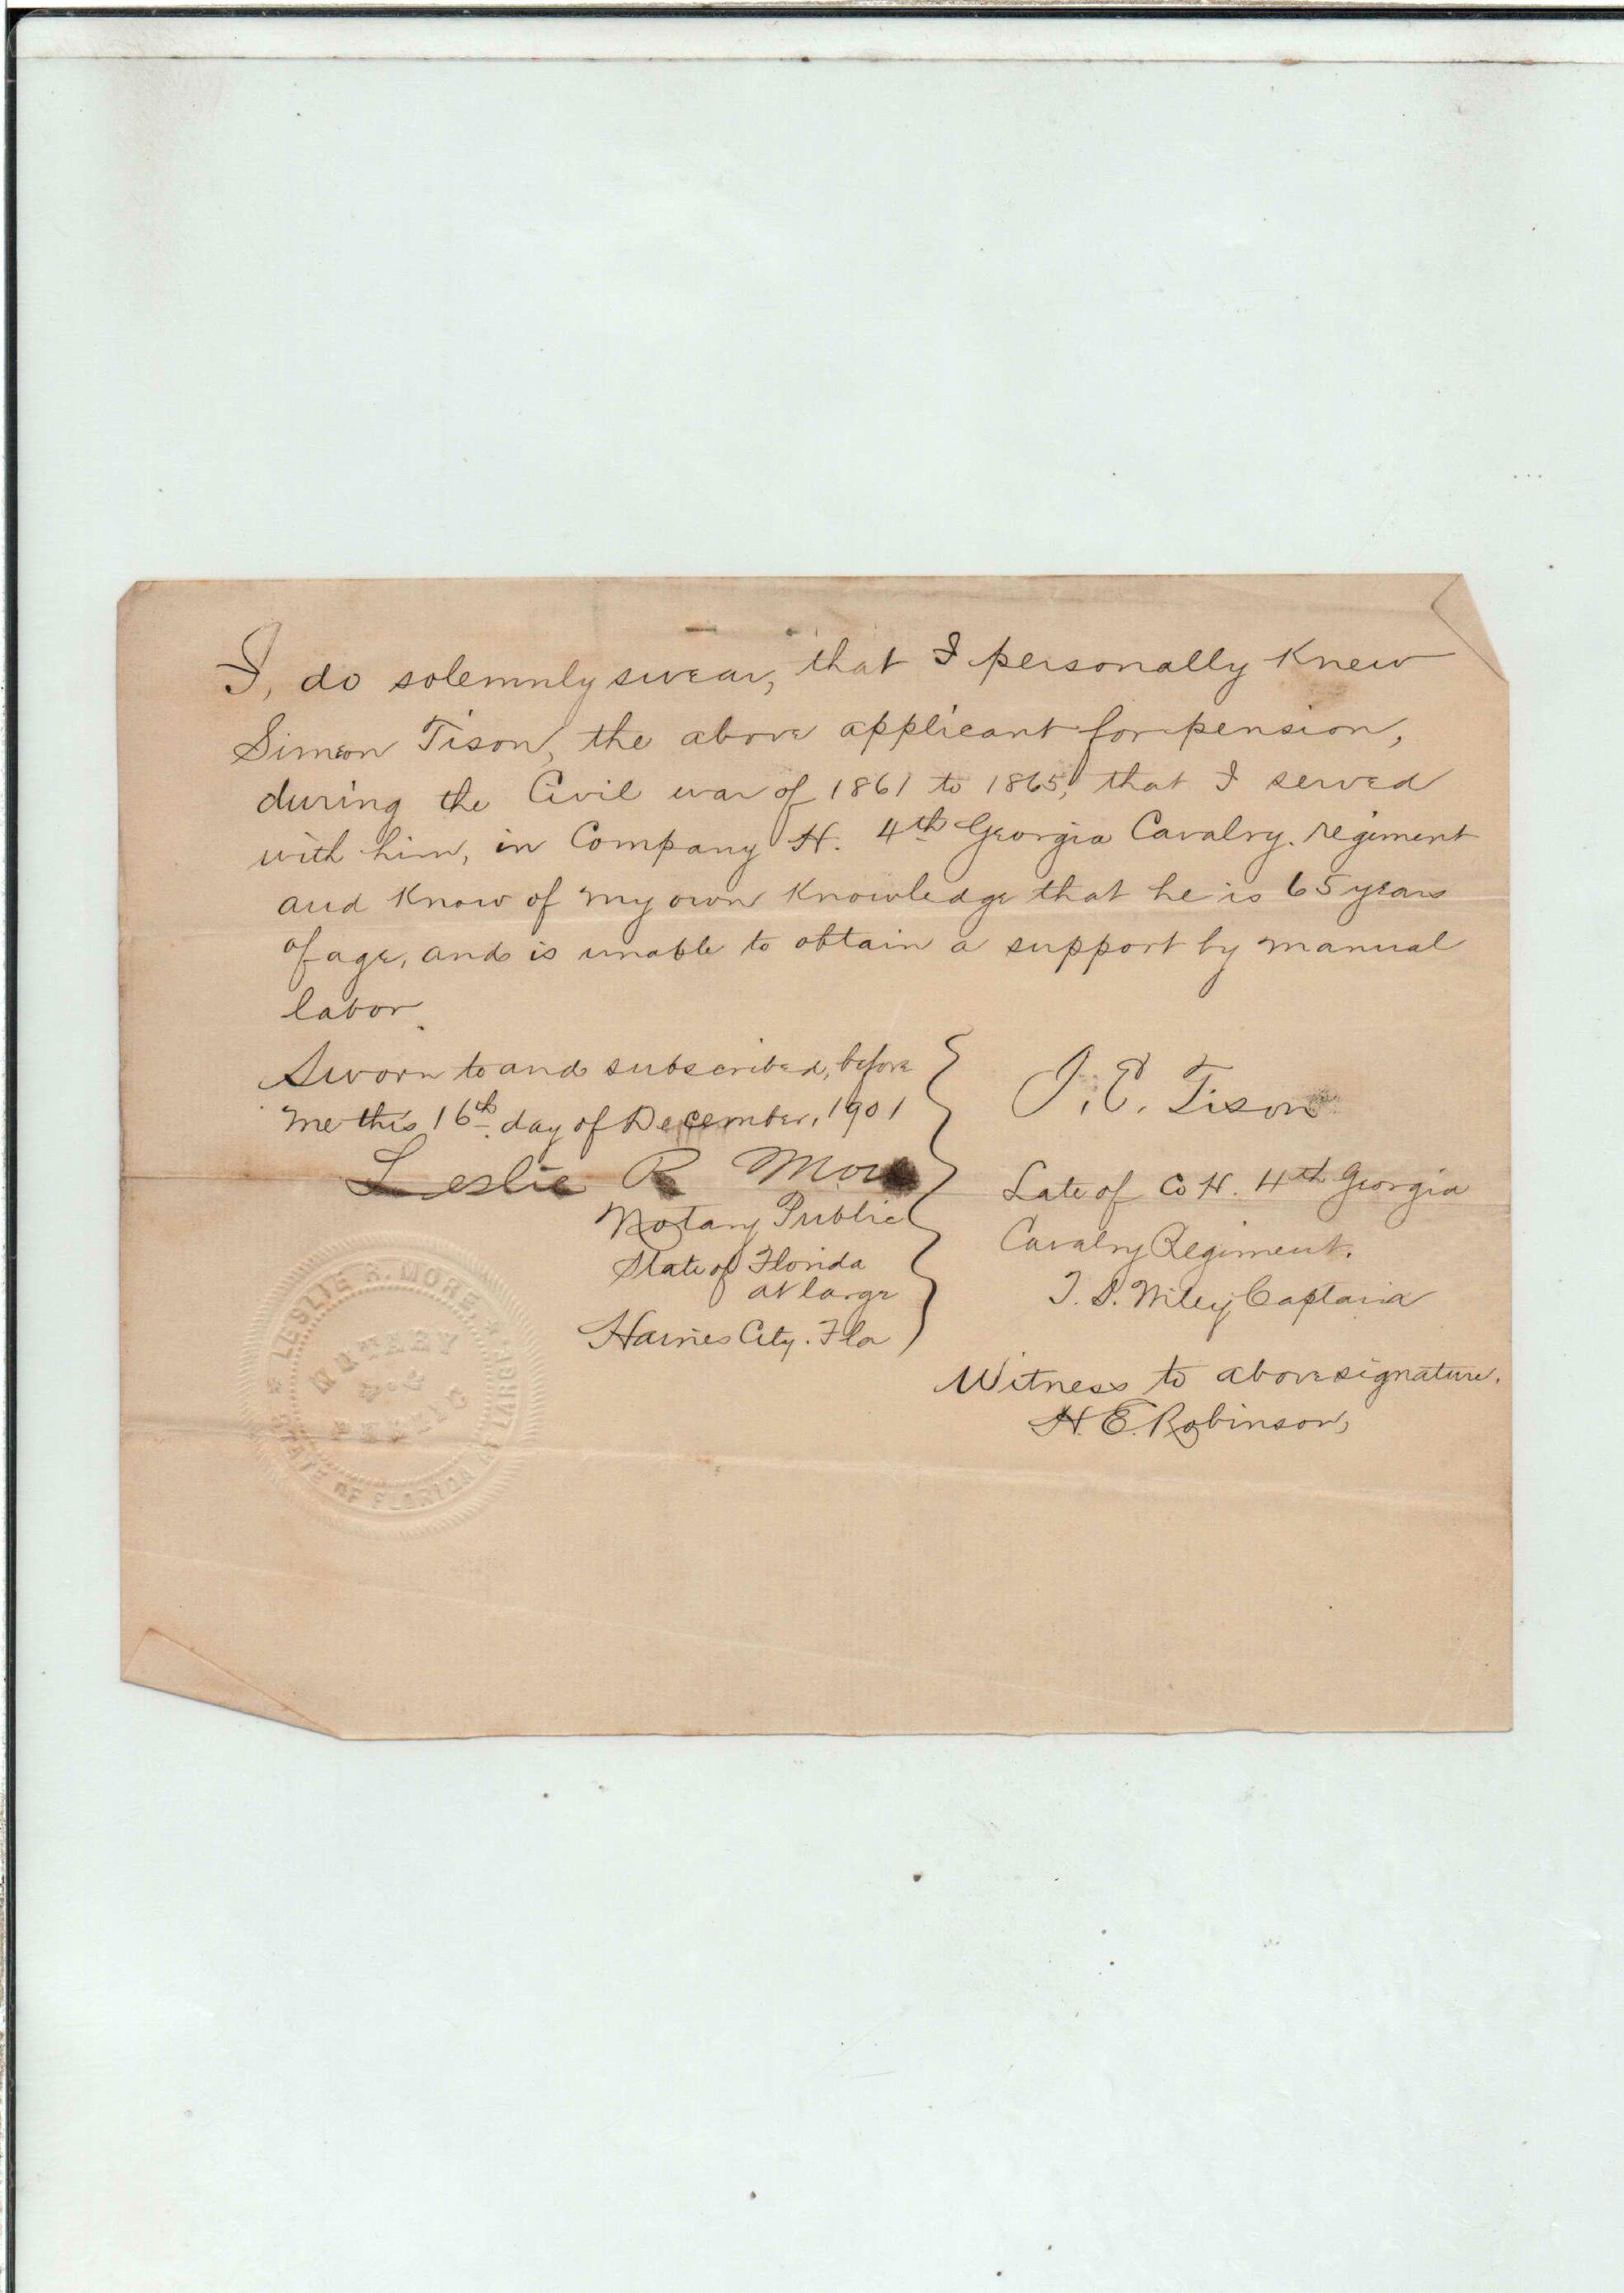 I, do solemnly swear, that I personally knew
Simeon Tison, the above applicant for pension,
during the Civil war of 1861 to 1865, that I served
with him, in Company H. 4th Georgia Cavalry. regiment
and know of my own knowledge that he is 65 years
of age, and is unable to obtain a support by manual
labor.
Sworn to and subscribed, before
me this 16th day of December, 1901
Leslie R More
Notary Public
State of Florida
at large
Haines City. Fla
J. E. Tison
Late of Co H. 4th Georgia
Cavalry Regiment.
T. S. Wiley Captain
Witness to above signature.
H. E. Robinson,
LESLIE R. MORE
NOTARY
PUBLIC
STATE OF FLORIDA AT LARGE